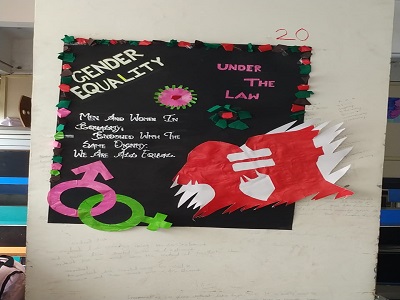 20
GENDER
EQUALITY
UNDER
THE
LAW
MEN AND WOMEN IN
ENDOWED WITH THE
SAME DIGNITY:
WE ARE ALSO EQUAL.